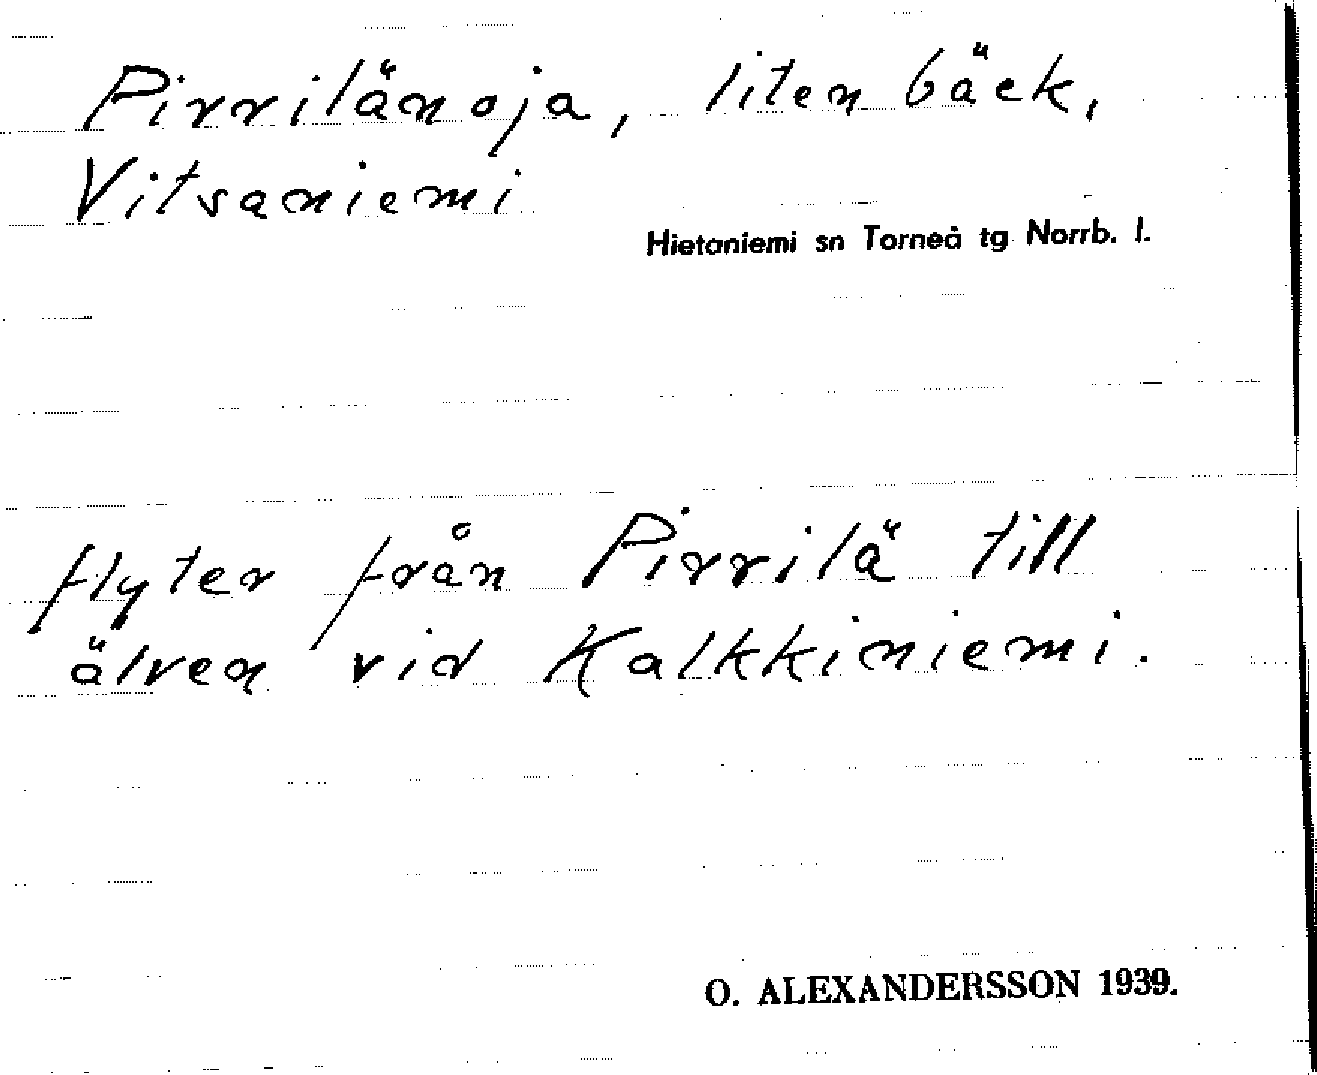 Pirrilänoja, liten bäck,
Vitsaniemi
Hietaniemi sn Torneå tg Norrb. l.
flyter från Pirrilä till
älven vid Kalkkiniemi.
O. ALEXANDERSSON 1939.